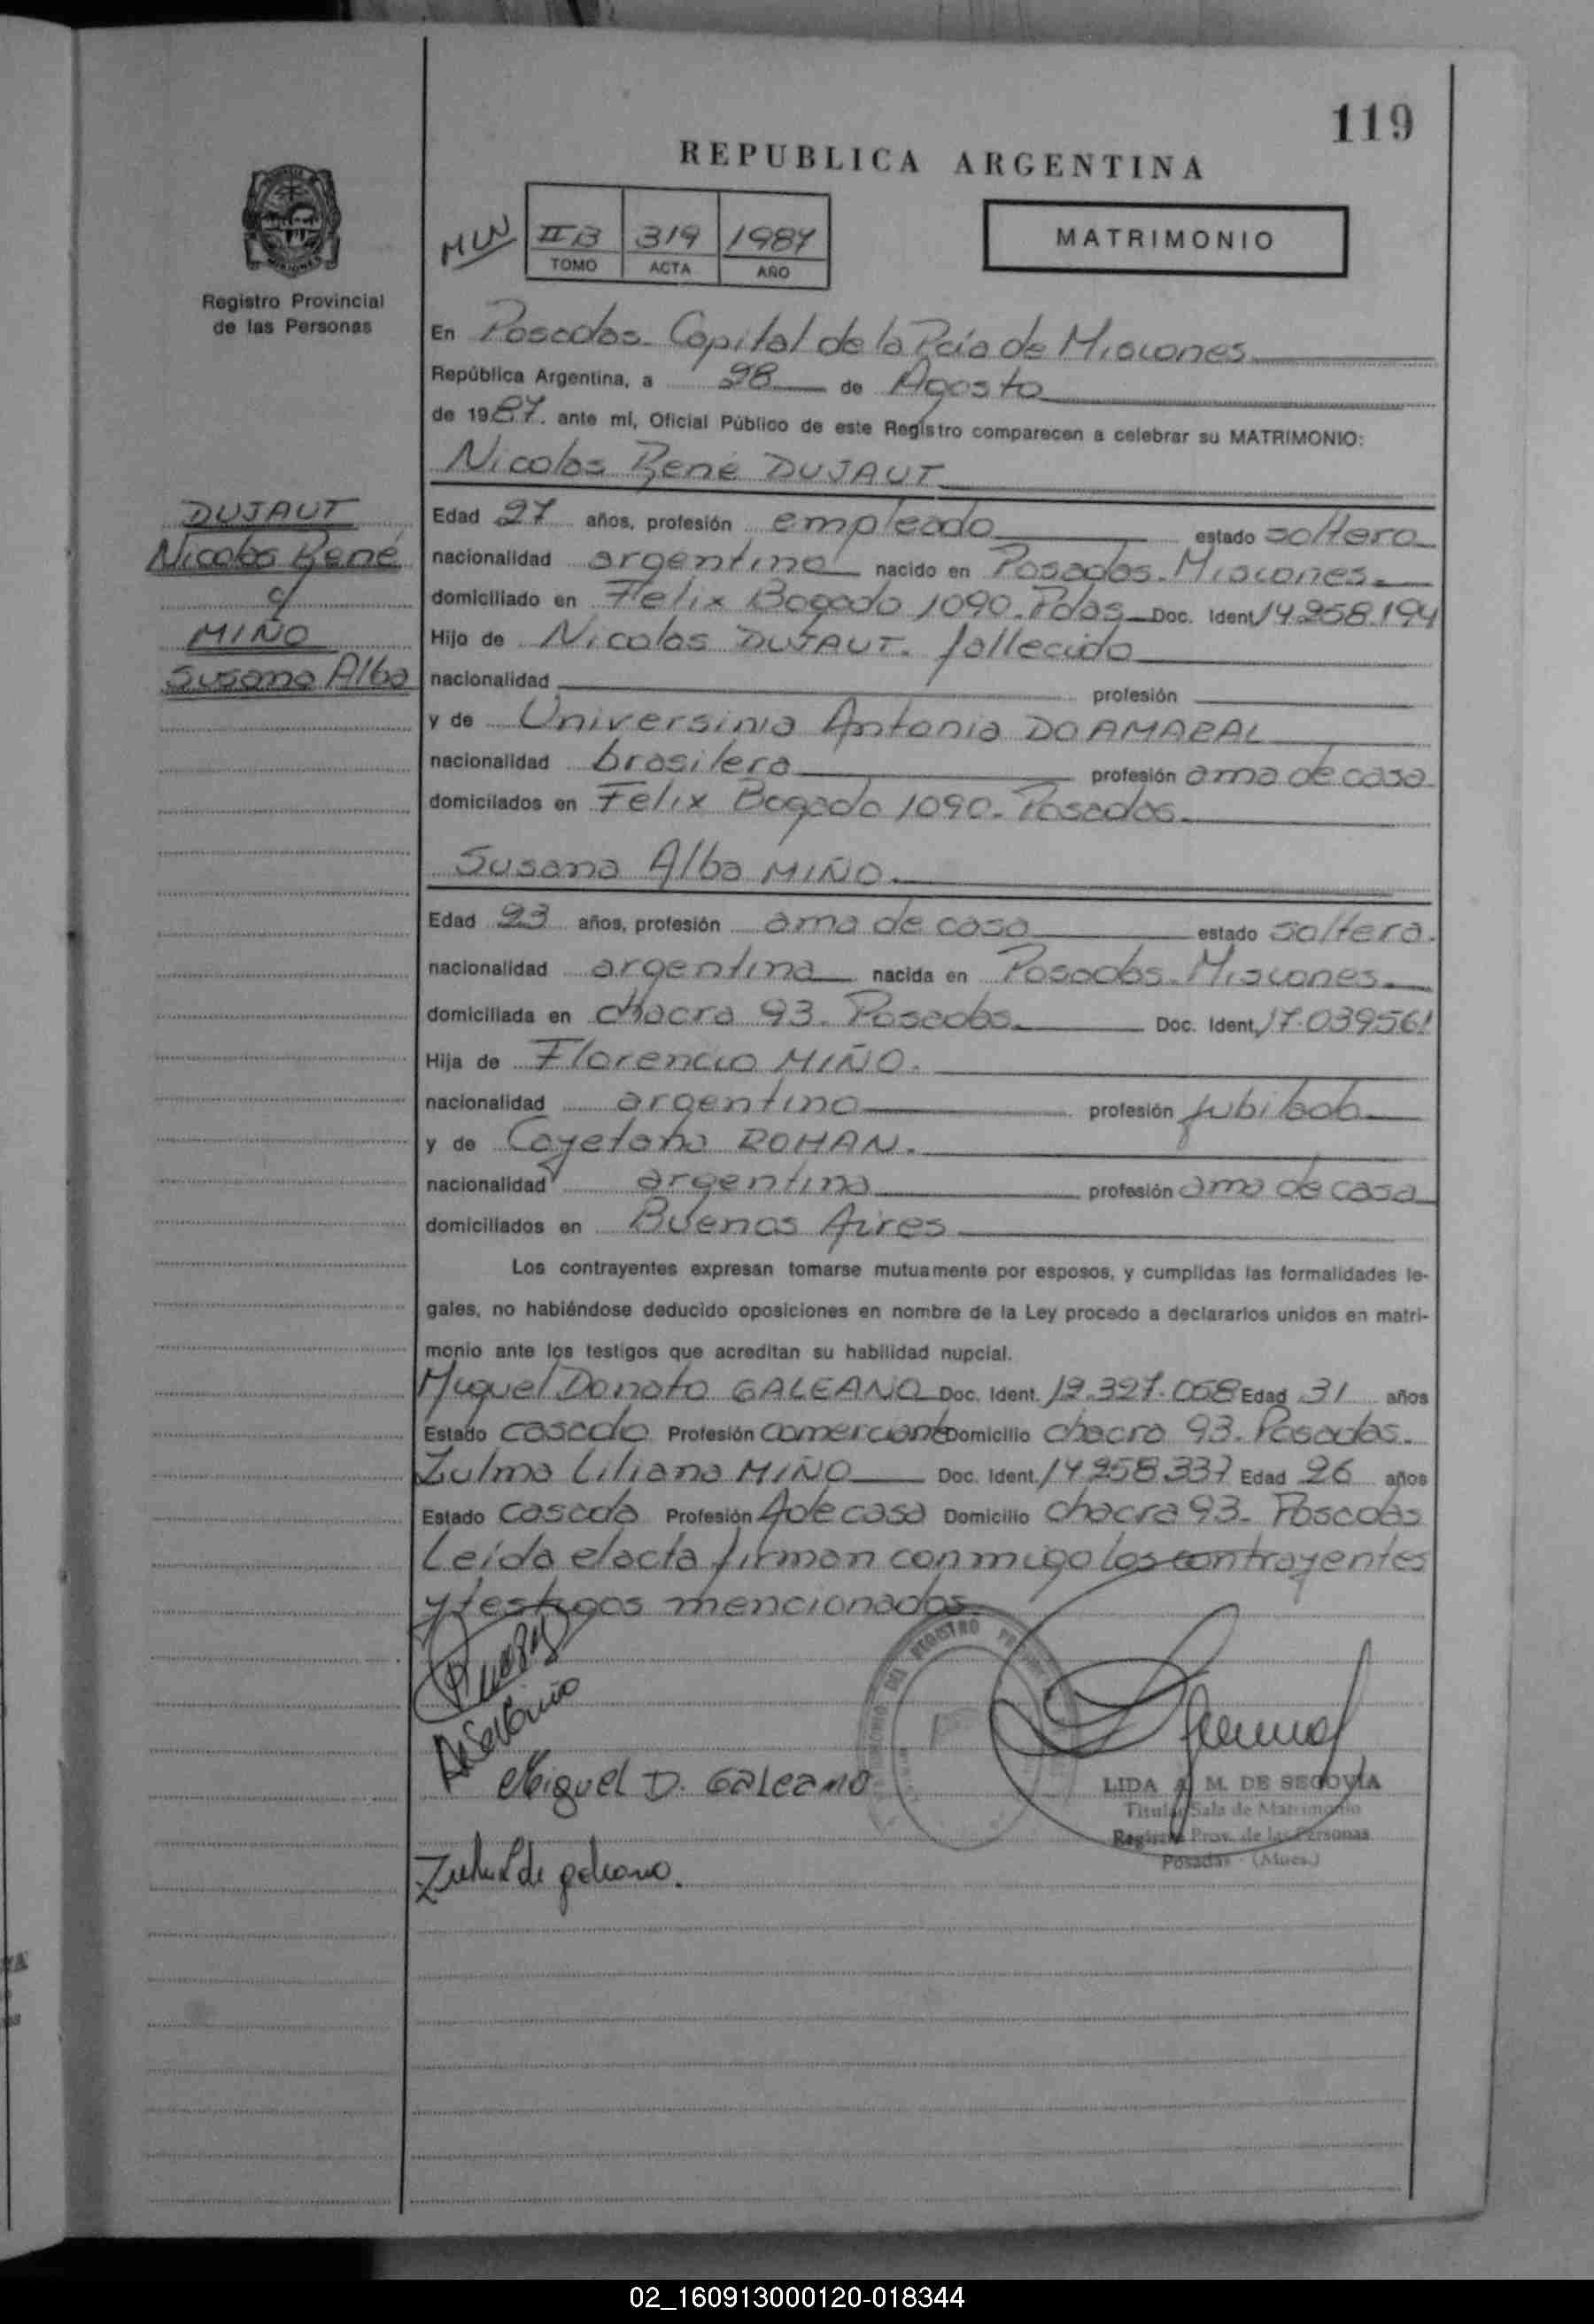 119
REPUBLICA ARGENTINA
MLN
IIB 319 1987
TOMO ACTA AÑO
MATRIMONIO
Registro Provincial
de las Personas
En Posadas Capital de la Pcia de Misiones
República Argentina, a 28 de Agosto
de 1987. ante mí, Oficial Público de este Registro comparecen a celebrar su MATRIMONIO:
Nicolas René DUJAUT
DUJAUT
Nicolas René
c/
MIÑO
Susana Alba
Edad 27 años, profesión empleado estado soltero
nacionalidad argentino nacido en Posadas. Misiones.
domiciliado en Felix Bogado 1090. Pdas Doc. Ident 14.258.194
Hijo de Nicolas DUJAUT. fallecido
nacionalidad profesión
y de Universinia Antonia DO AMARAL
nacionalidad brasilera profesión ama de casa
domicilados en Felix Bogado 1090. Posadas.
Susana Alba MIÑO.
Edad 23 años, profesión ama de casa estado soltera.
nacionalidad argentina nacida en Posadas. Misiones.
domiciliada en chacra 93. Posadas. Doc. Ident. 17.039561
Hija de Florencio MIÑO.
nacionalidad argentino profesión jubilado
y de Cayetana ROMAN.
nacionalidad argentina profesión ama de casa
domiciliados en Buenos Aires
Los contrayentes expresan tomarse mutuamente por esposos, y cumplidas las formalidades le-
gales, no habiéndose deducido oposiciones en nombre de la Ley procedo a declararlos unidos en matri-
monio ante los testigos que acreditan su habilidad nupcial.
Miguel Donato GALEANO Doc. Ident. 12.327.058 Edad 31 años
Estado casado Profesión comerciante Domicilio chacra 93. Posadas.
Zulma Liliana MIÑO Doc. Ident. 14.258.337 Edad 26 años
Estado casada Profesión A de casa Domicilio chacra 93. Posadas
Leída el acta firman conmigo los contrayentes
y testigos mencionados.
Miguel D. GALEANO
LIDA A. M. DE SEGOVIA
Titular Sala de Matrimonio
Registro Prov. de las Personas
Posadas - (Mnes.)
Zulma de galeano.
02_160913000120-018344